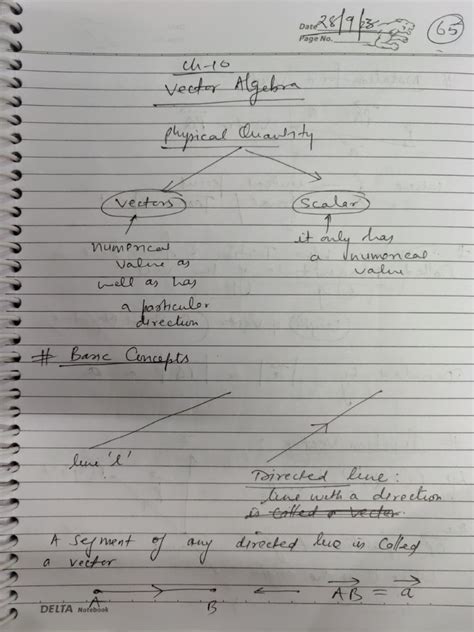 Date 28/9/23
Page No. 65
Ch-10
Vector Algebra
Physical Quantity
Vectors
Scaler
numerical
value as
well as has
a particular
direction
it only has
a numerical
value
# Basic Concepts
line 'l'
Directed line:
line with a direction
is called a vector
A segment of any directed line is called
a vector
A B
AB = a
DELTA Notebook